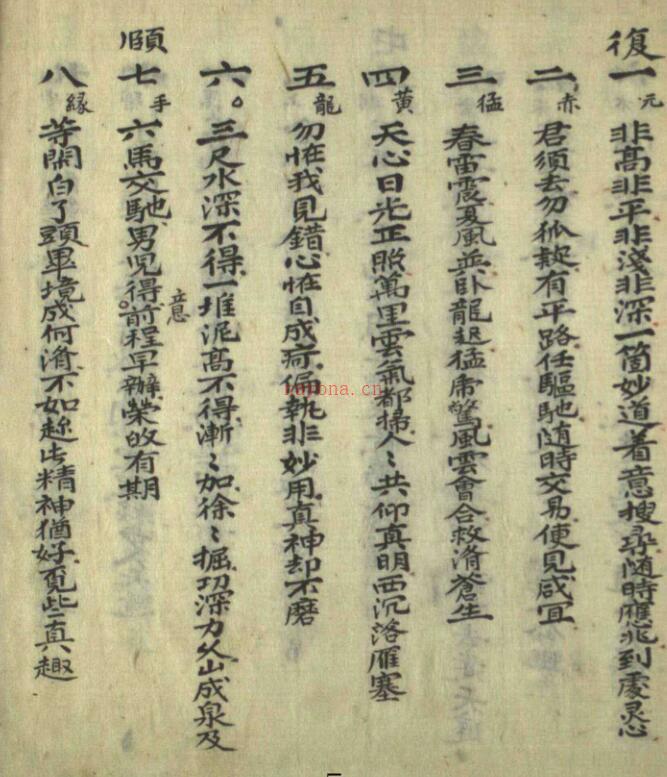 復一元 非髙非平非淺非深一箇妙道着意搜尋随時應兆到處灵心
二赤 君须去勿狐疑有平路任驅馳随時交易使見咸宜
三猛 春雷震夏風並卧龍起猛虎驚風雲會合救濟蒼生
四黄 天心日光正照萬里雲氣都掃人〻共仰真明西沉落雁塞
五龍 勿怪我見錯心怪自成疴偏執非妙用真神却不磨
六。三尺水深不得一堆泥髙不得漸〻加徐〻掘功深力久山成泉及
頤七手 六馬交馳男児得意前程早辦榮的有期
八緣 等閑白了頭畢境成何濟不如趂此精神猶好覓些真趣